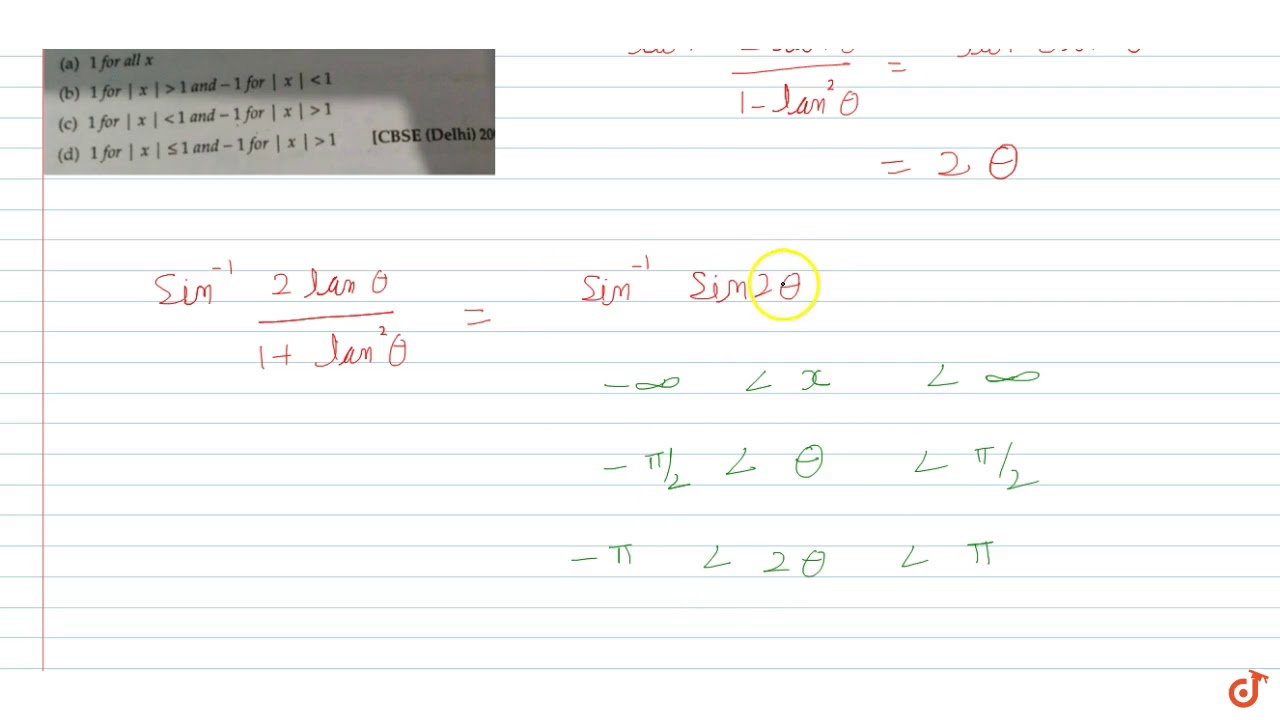 (a) 1 for all x
(b) 1 for | x | > 1 and – 1 for | x | < 1
(c) 1 for | x | < 1 and – 1 for | x | > 1
(d) 1 for | x | ≤ 1 and – 1 for | x | > 1 [CBSE (Delhi) 20
=
1 - tan²θ
= 2 θ
Sin⁻¹ 2 tan θ / 1 + tan²θ = Sin⁻¹ Sin 2θ
-∞ < x < ∞
-π/2 < θ < π/2
-π < 2θ < π